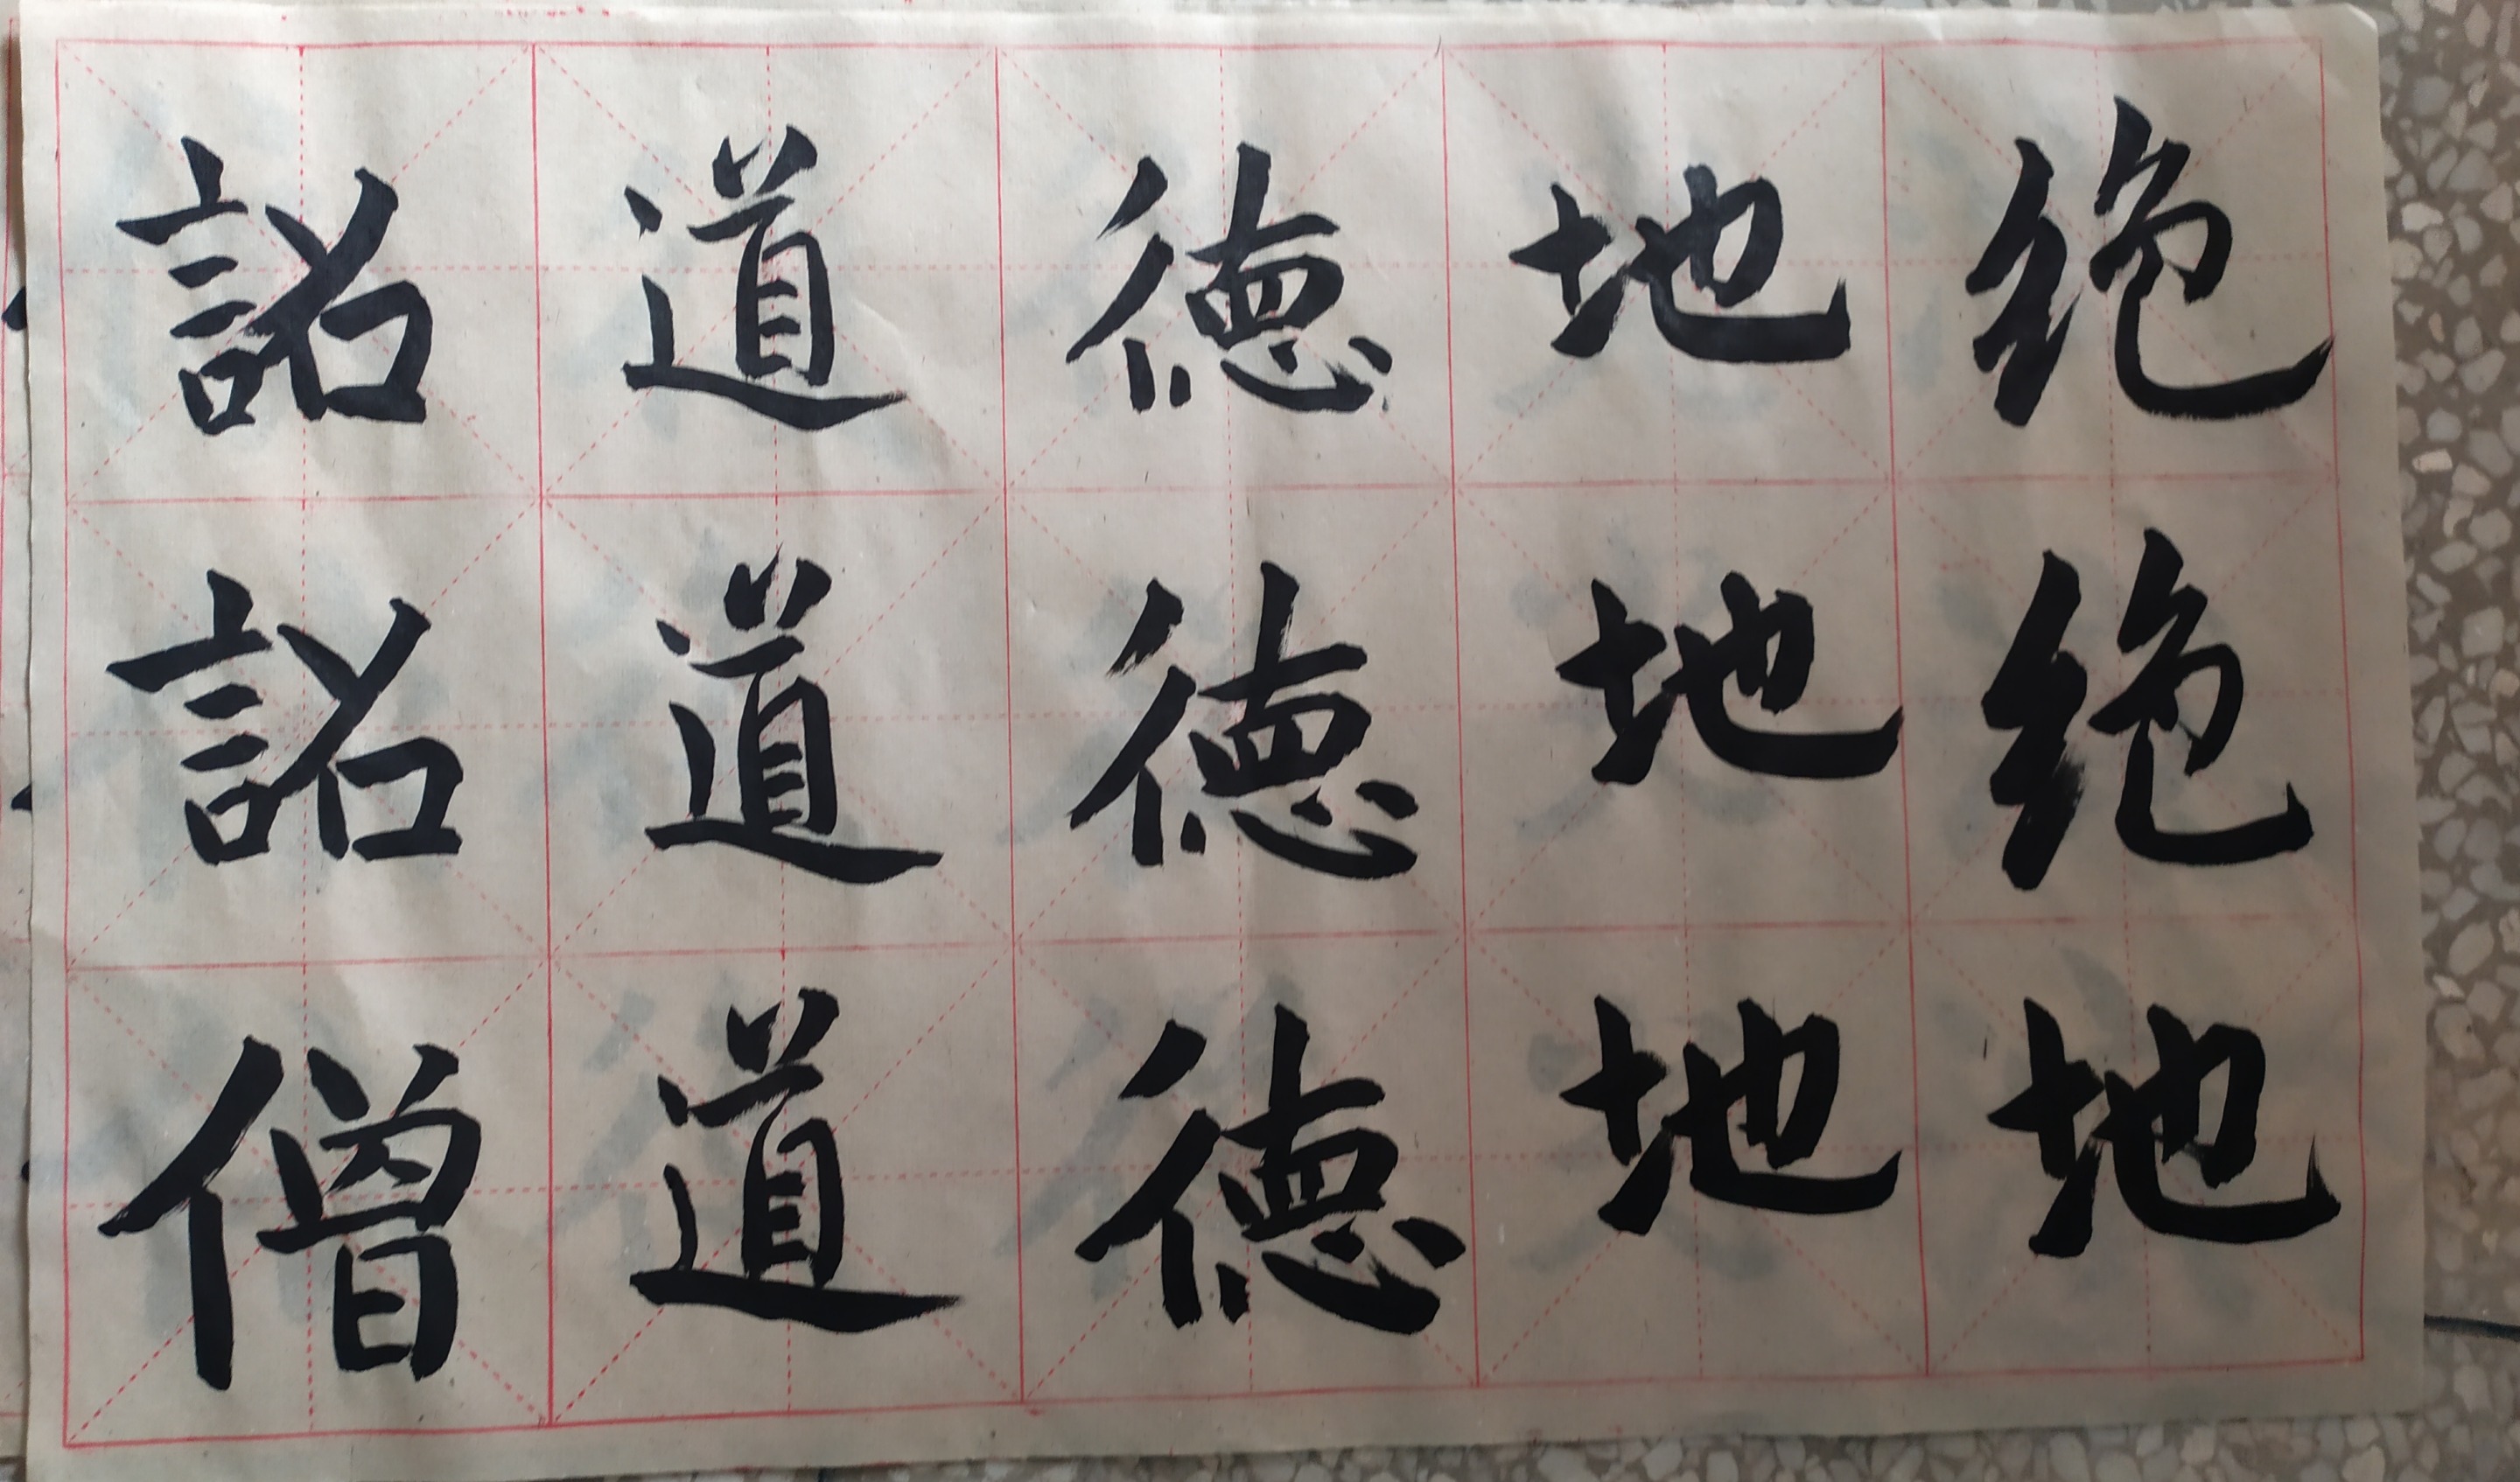 绝绝地
地地地
徳徳徳
道道道
詔詔僧